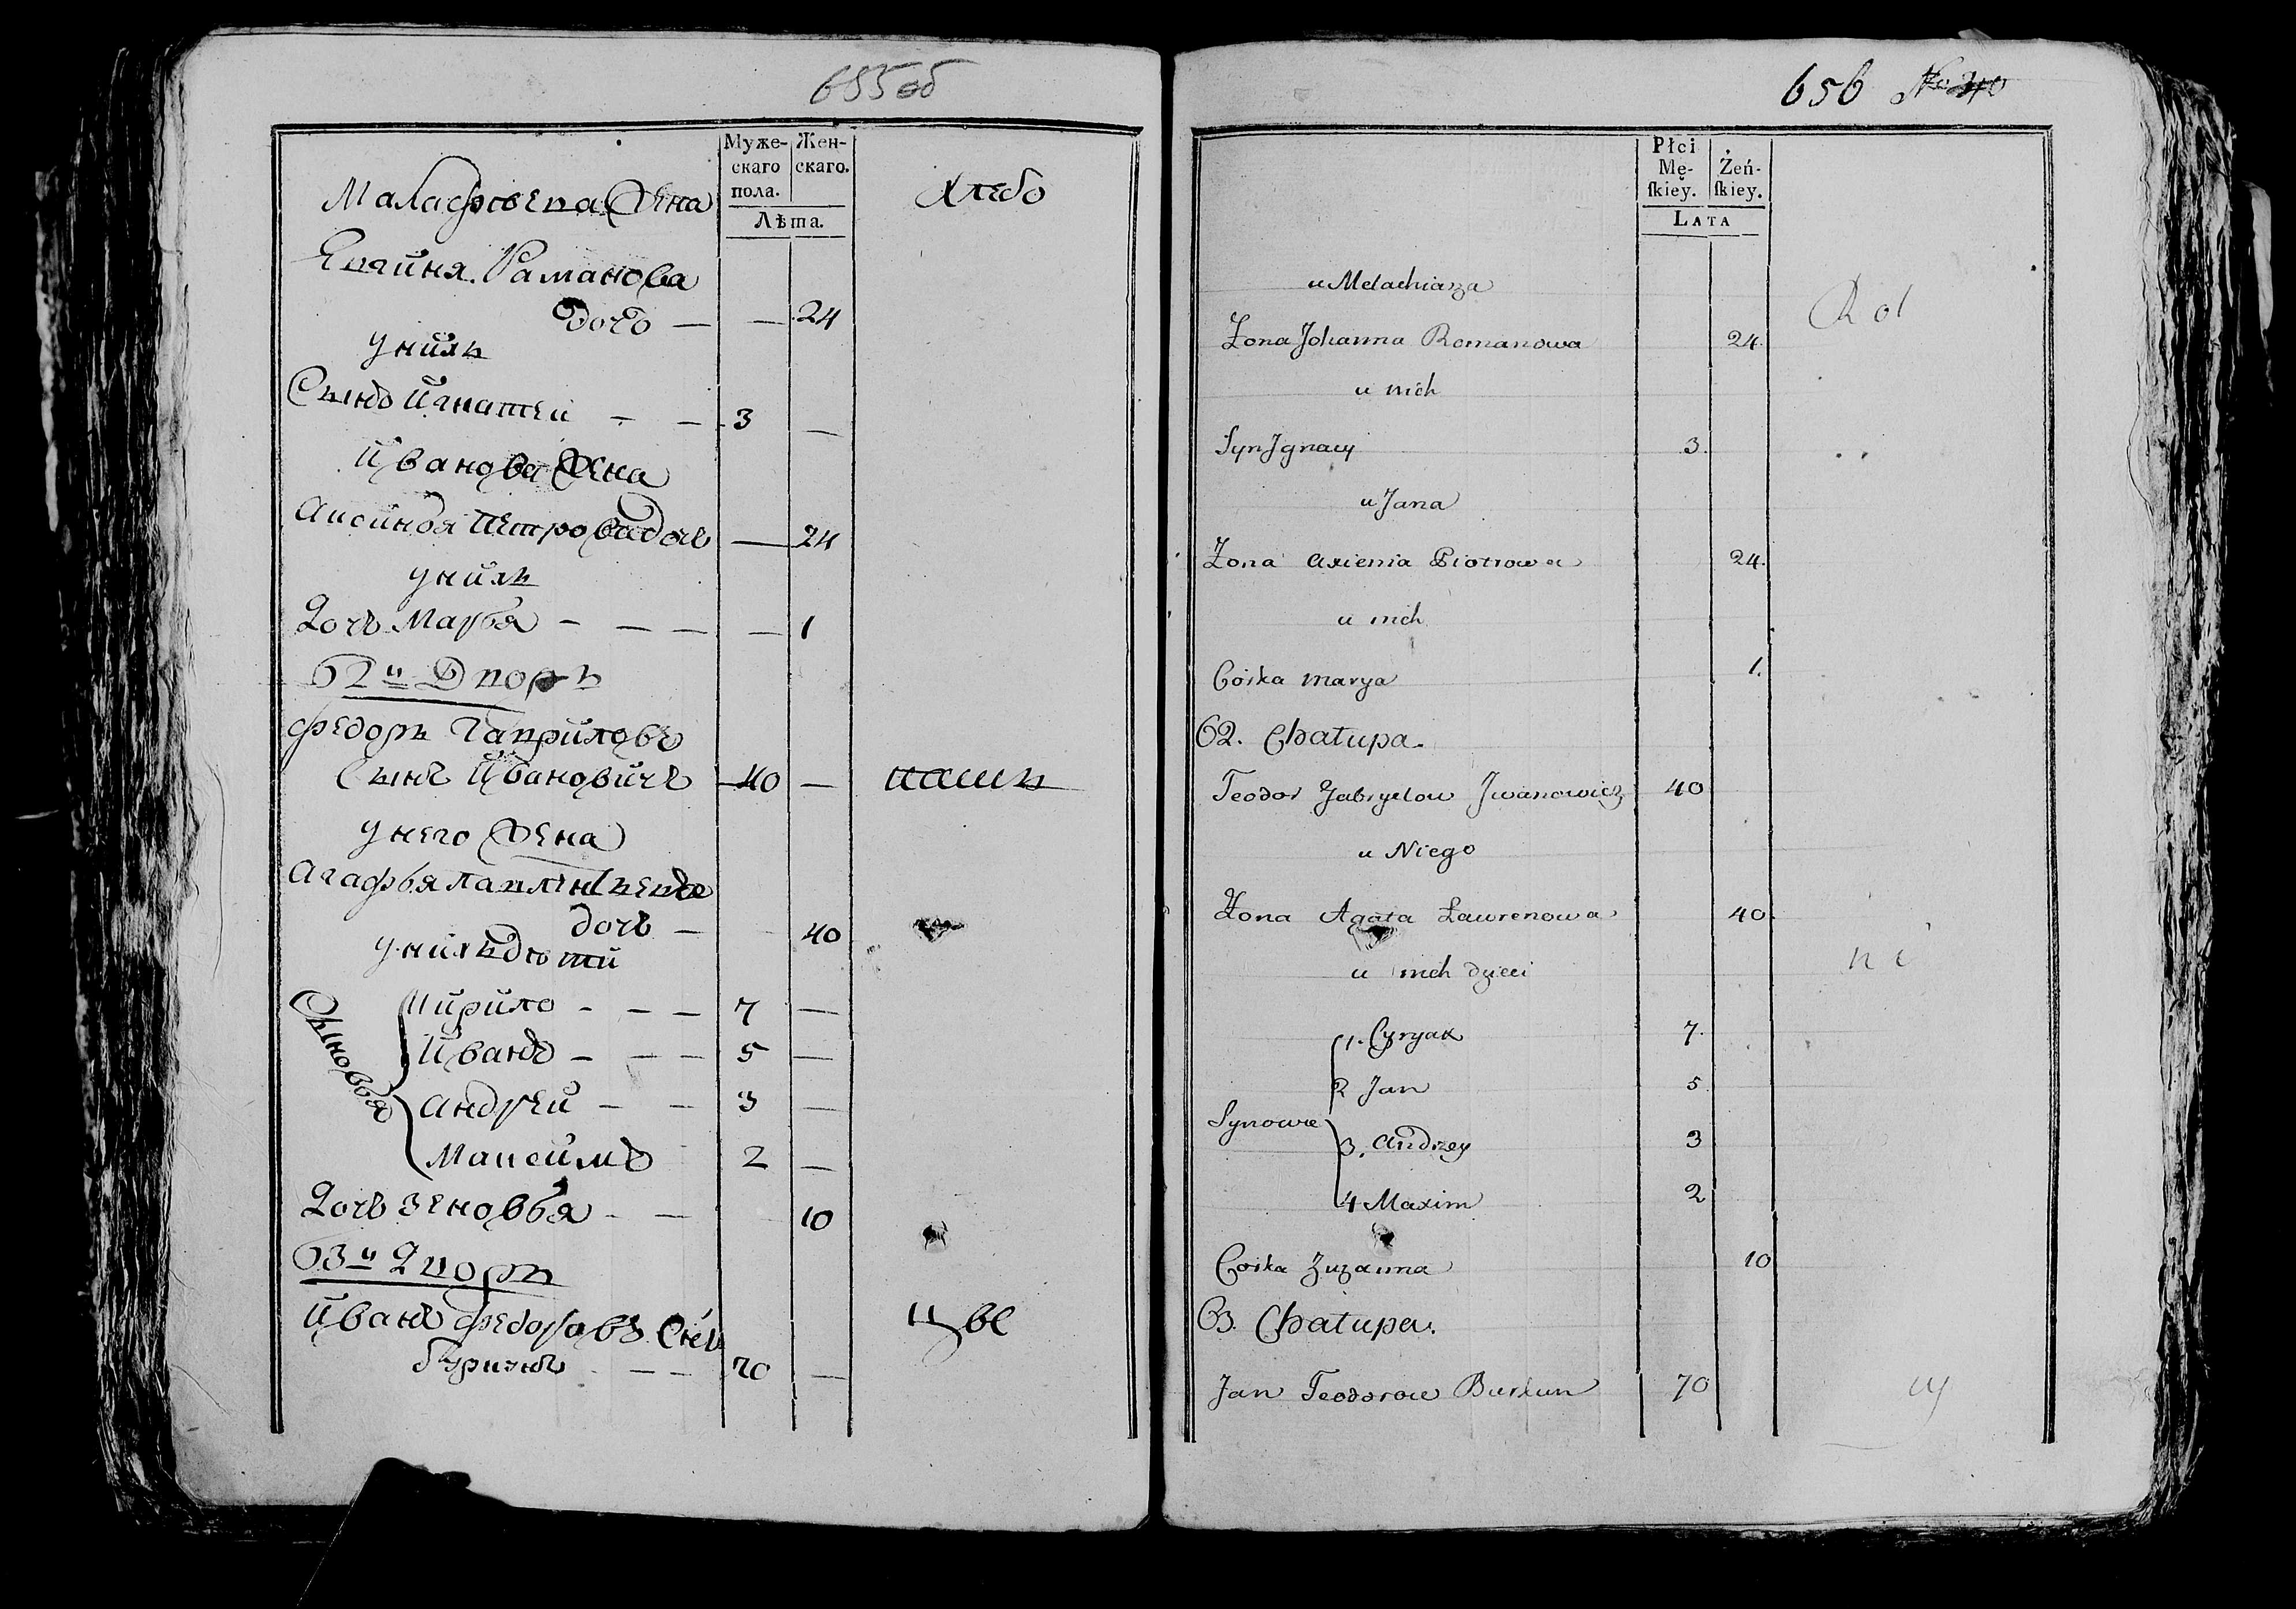 655об
Муже-
скаго
пола.
Жен-
скаго.
Лѣта.
Малафѣева Жена
Хлебо
Романова
дочь — — 24
у нихъ
Сынъ Игнатей — — 3 —
Иванова Жена
Аксинья Петрова дочь — 24
у нихъ
Дочь Марья — — — — 1
62й Дворъ
Федоръ Гавриловъ
Сынъ Ивановичъ 40 — пашн
у него Жена
Агафья
дочь — 40
у нихъ дѣти
Сыновья
Кирило — — — 7 —
Иванъ — — — 5 —
Андрей — — 3 —
Максимъ 2 —
Дочь Зеновья — — 10
63й Дворъ
Иванъ Федоровъ Снъ
— — 70 —
656 No 40
Płci
Mę-
ſkiey.
Żeń-
ſkiey.
LATA
u Melachiasza
Rol
Żona Johanna Romanowa 24.
u nich
Syn Jgnacy 3.
u Jana
Żona Axienia Piotrowa 24.
u nich
Corka Marya 1.
62. Chałupa.
Teodor Gabryelow Jwanowicz 40
u Niego
Żona Agata Ławrenowa 40.
u nich dzieci
Synowie
1. Cyryak 7.
2 Jan 5.
3. Andrzey 3
4 Maxim 2
Corka Zuzanna 10
63. Chałupa.
Jan Teodorow Burkun 70